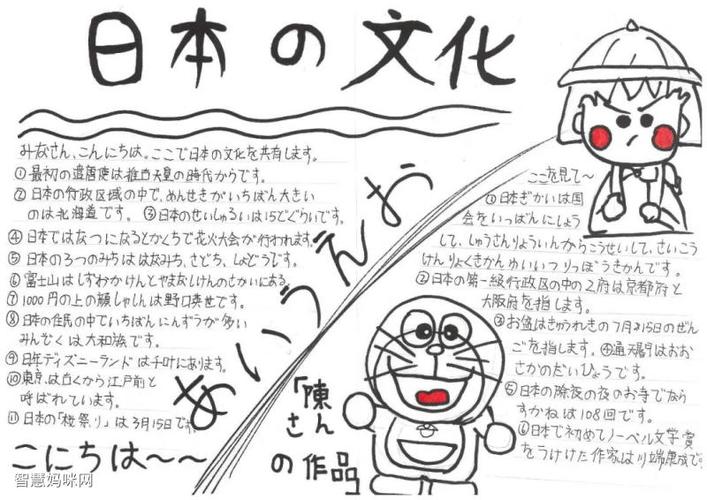 日本の文化
みなさん、こんにちは。ここで日本の文化を共有します。
① 最初の遣唐使は推古天皇の時代からです。
② 日本の行政区域の中で、めんせきがいちばん大きい
のは北海道です。 ③日本のせいしゅるいは15どぐらいです。
④ 日本ではなつになるとかくちで花火大会が行われます。
⑤ 日本の3つのみちははなみち、さどち、しょどうです。
⑥ 富士山はしずおかけんとやまなしけんのさかいにある。
⑦ 1000円の上の顔しゃしんは野口英世です。
⑧ 日本の住民の中でいちばんにんずうが多い
みんぞくは大和族です。
⑨ 日本ディズニーランドは千叶にあります。
⑩ 東京は古くから江戸前と
呼ばれています。
⑪ 日本の「桜祭り」は3月15日です
こにちは〜〜
あいうえお
「陳さん
の作品」
ここを見て〜
①日本ぎかいは国
会をいっぱんにしょう
して、しゅうさんりょういんからこうせいして、さいこう
けんりょくきかんゆいいつりっぽうきかんです。
②日本の第一級行政区の中の2府は京都府と
大阪府を指します。
③お盆はきゅうれきの7月15日のぜん
ごを指します。④通天閣はおお
さかのだいひょうです。
⑤日本の除夜の夜のお寺でなら
すかねは108回です。
⑥日本で初めてノーベル文学賞
をうけた作家は川端康成で
智慧妈咪网